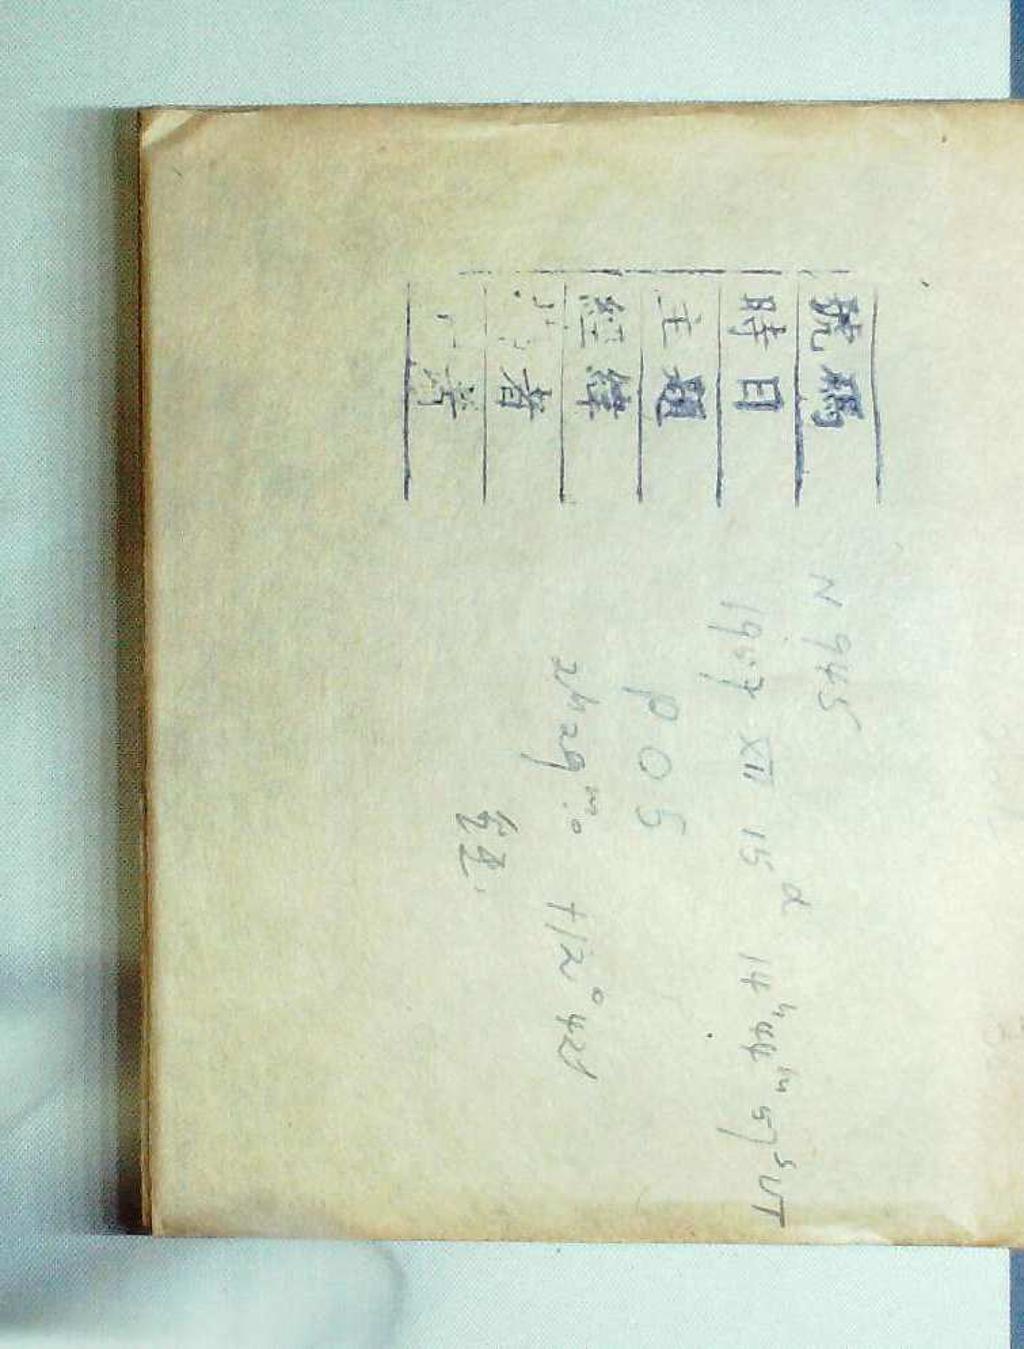 號碼 N 945
時日 1957 XII 15ᵈ 14ʰ44ᵐ57ˢ UT
主題 P O 5
經緯 2h29ᵐ.0 +12°42'
者